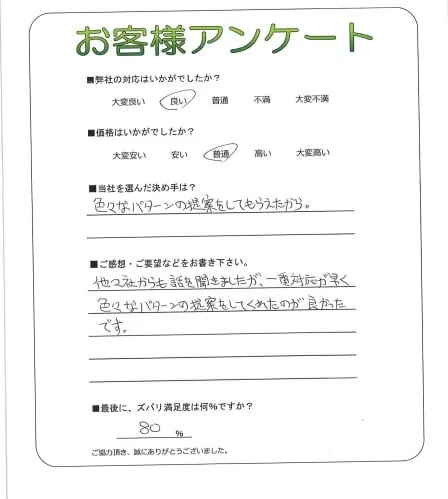 お客様アンケート
■弊社の対応はいかがでしたか?
大変良い 良い 普通 不満 大変不満
■価格はいかがでしたか?
大変安い 安い 普通 高い 大変高い
■当社を選んだ決め手は?
色々なパターンの提案をしてもらえたから。
■ご感想・ご要望などをお書き下さい。
他々社からも話を聞きましたが、一番対応が早く
色々なパターンの提案をしてくれたのが良かった
です。
■最後に、ズバリ満足度は何%ですか?
80 %
ご協力頂き、誠にありがとうございました。